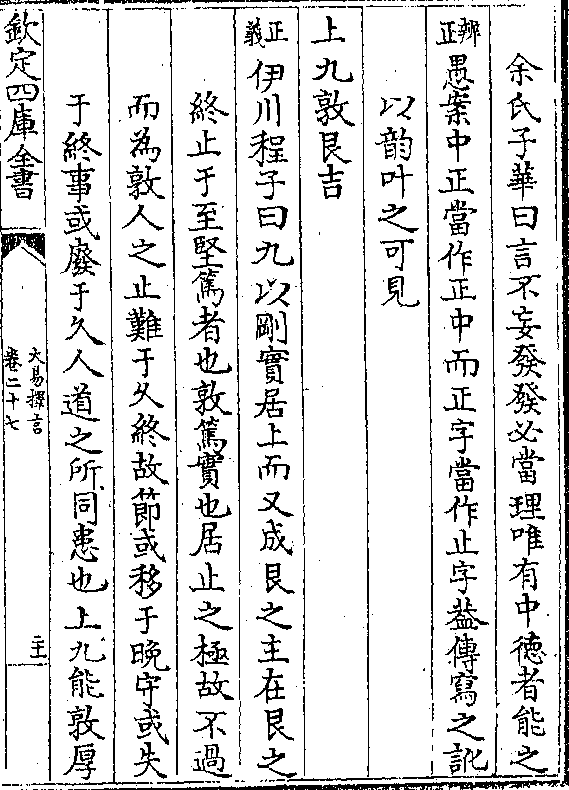 余氏子華曰言不妄發發必當理唯有中德者能之
辨正愚案中正當作正中而正字當作止字葢傳寫之訛
以韵叶之可見
上九敦艮吉
正義伊川程子曰九以剛實居上而又成艮之主在艮之
終止于至堅篤者也敦篤實也居止之極故不過
而為敦人之止難于久終故節或移于晚守或失
于終事或廢于久人道之所同患也上九能敦厚
欽定四庫全書
大易擇言
卷二十七